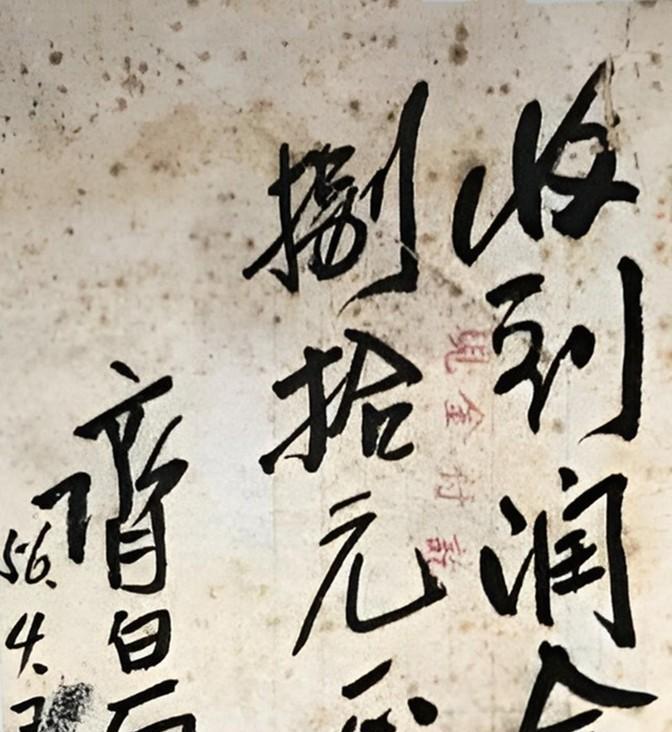 收到润金
捌拾元正
现金付讫
齊白石
56.4.